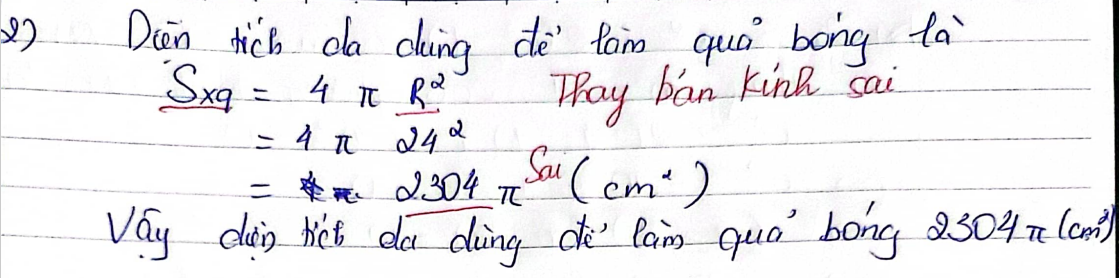 2) Diện tích da dùng để làm quả bóng là
Sxq = 4 π R² Thay bán kính sai
= 4 π 24²
= 2304 π Sai (cm²)
Vậy diện tích da dùng để làm quả bóng 2304 π (cm²)